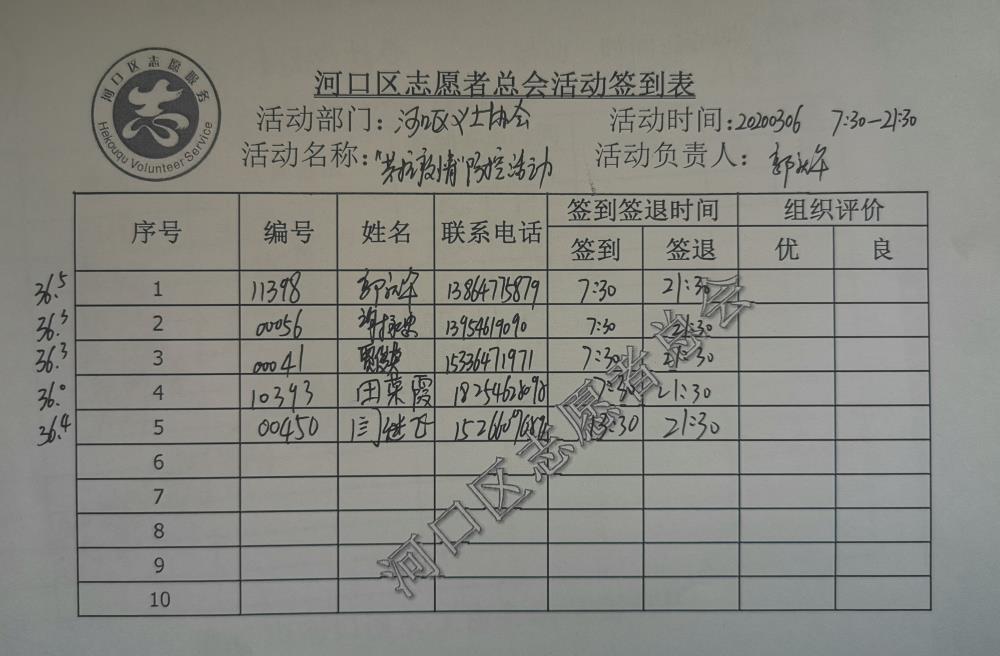 河口区志愿服务
Hekouqu Volunteer Service
河口区志愿者总会活动签到表
活动部门：河口区义工协会 活动时间：20200306 7:30—21:30
活动名称："抗疫情"防控活动 活动负责人：郭
序号 编号 姓名 联系电话 签到签退时间 组织评价
签到 签退 优 良
36.5 1 11398 郭 13864775879 7:30 21:30
36.3 2 00056 13954619090 7:30 21:30
36.3 3 00041 15336471971 7:30 21:30
36.0 4 10393 田菜霞 18254628098 7:30 21:30
36.4 5 00450 闫继飞 13:30 21:30
6
7
8
9
10
河口区志愿者总会